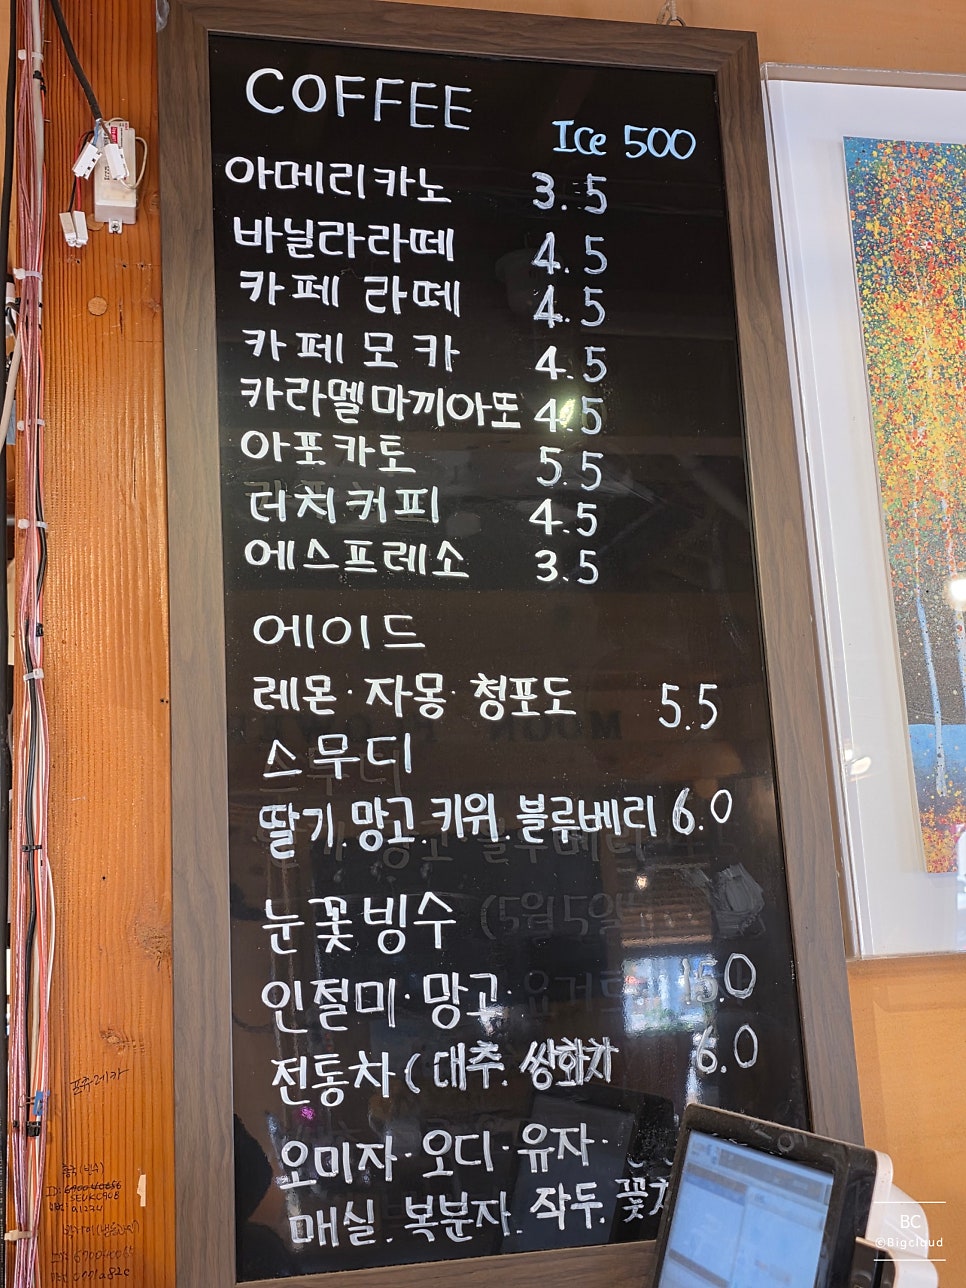 COFFEE
Ice 500
아메리카노 3.5
바닐라라떼 4.5
카페 라떼 4.5
카페모카 4.5
카라멜마끼아또 4.5
아포카토 5.5
더치커피 4.5
에스프레소 3.5
에이드
레몬·자몽·청포도 5.5
스무디
딸기.망고.키위.블루베리 6.0
눈꽃빙수
인절미·망고· 15.0
전통차(대추.쌍화차 6.0
오미자·오디·유자·
매실.복분자.작두.꽃차
BC
©Bigcloud